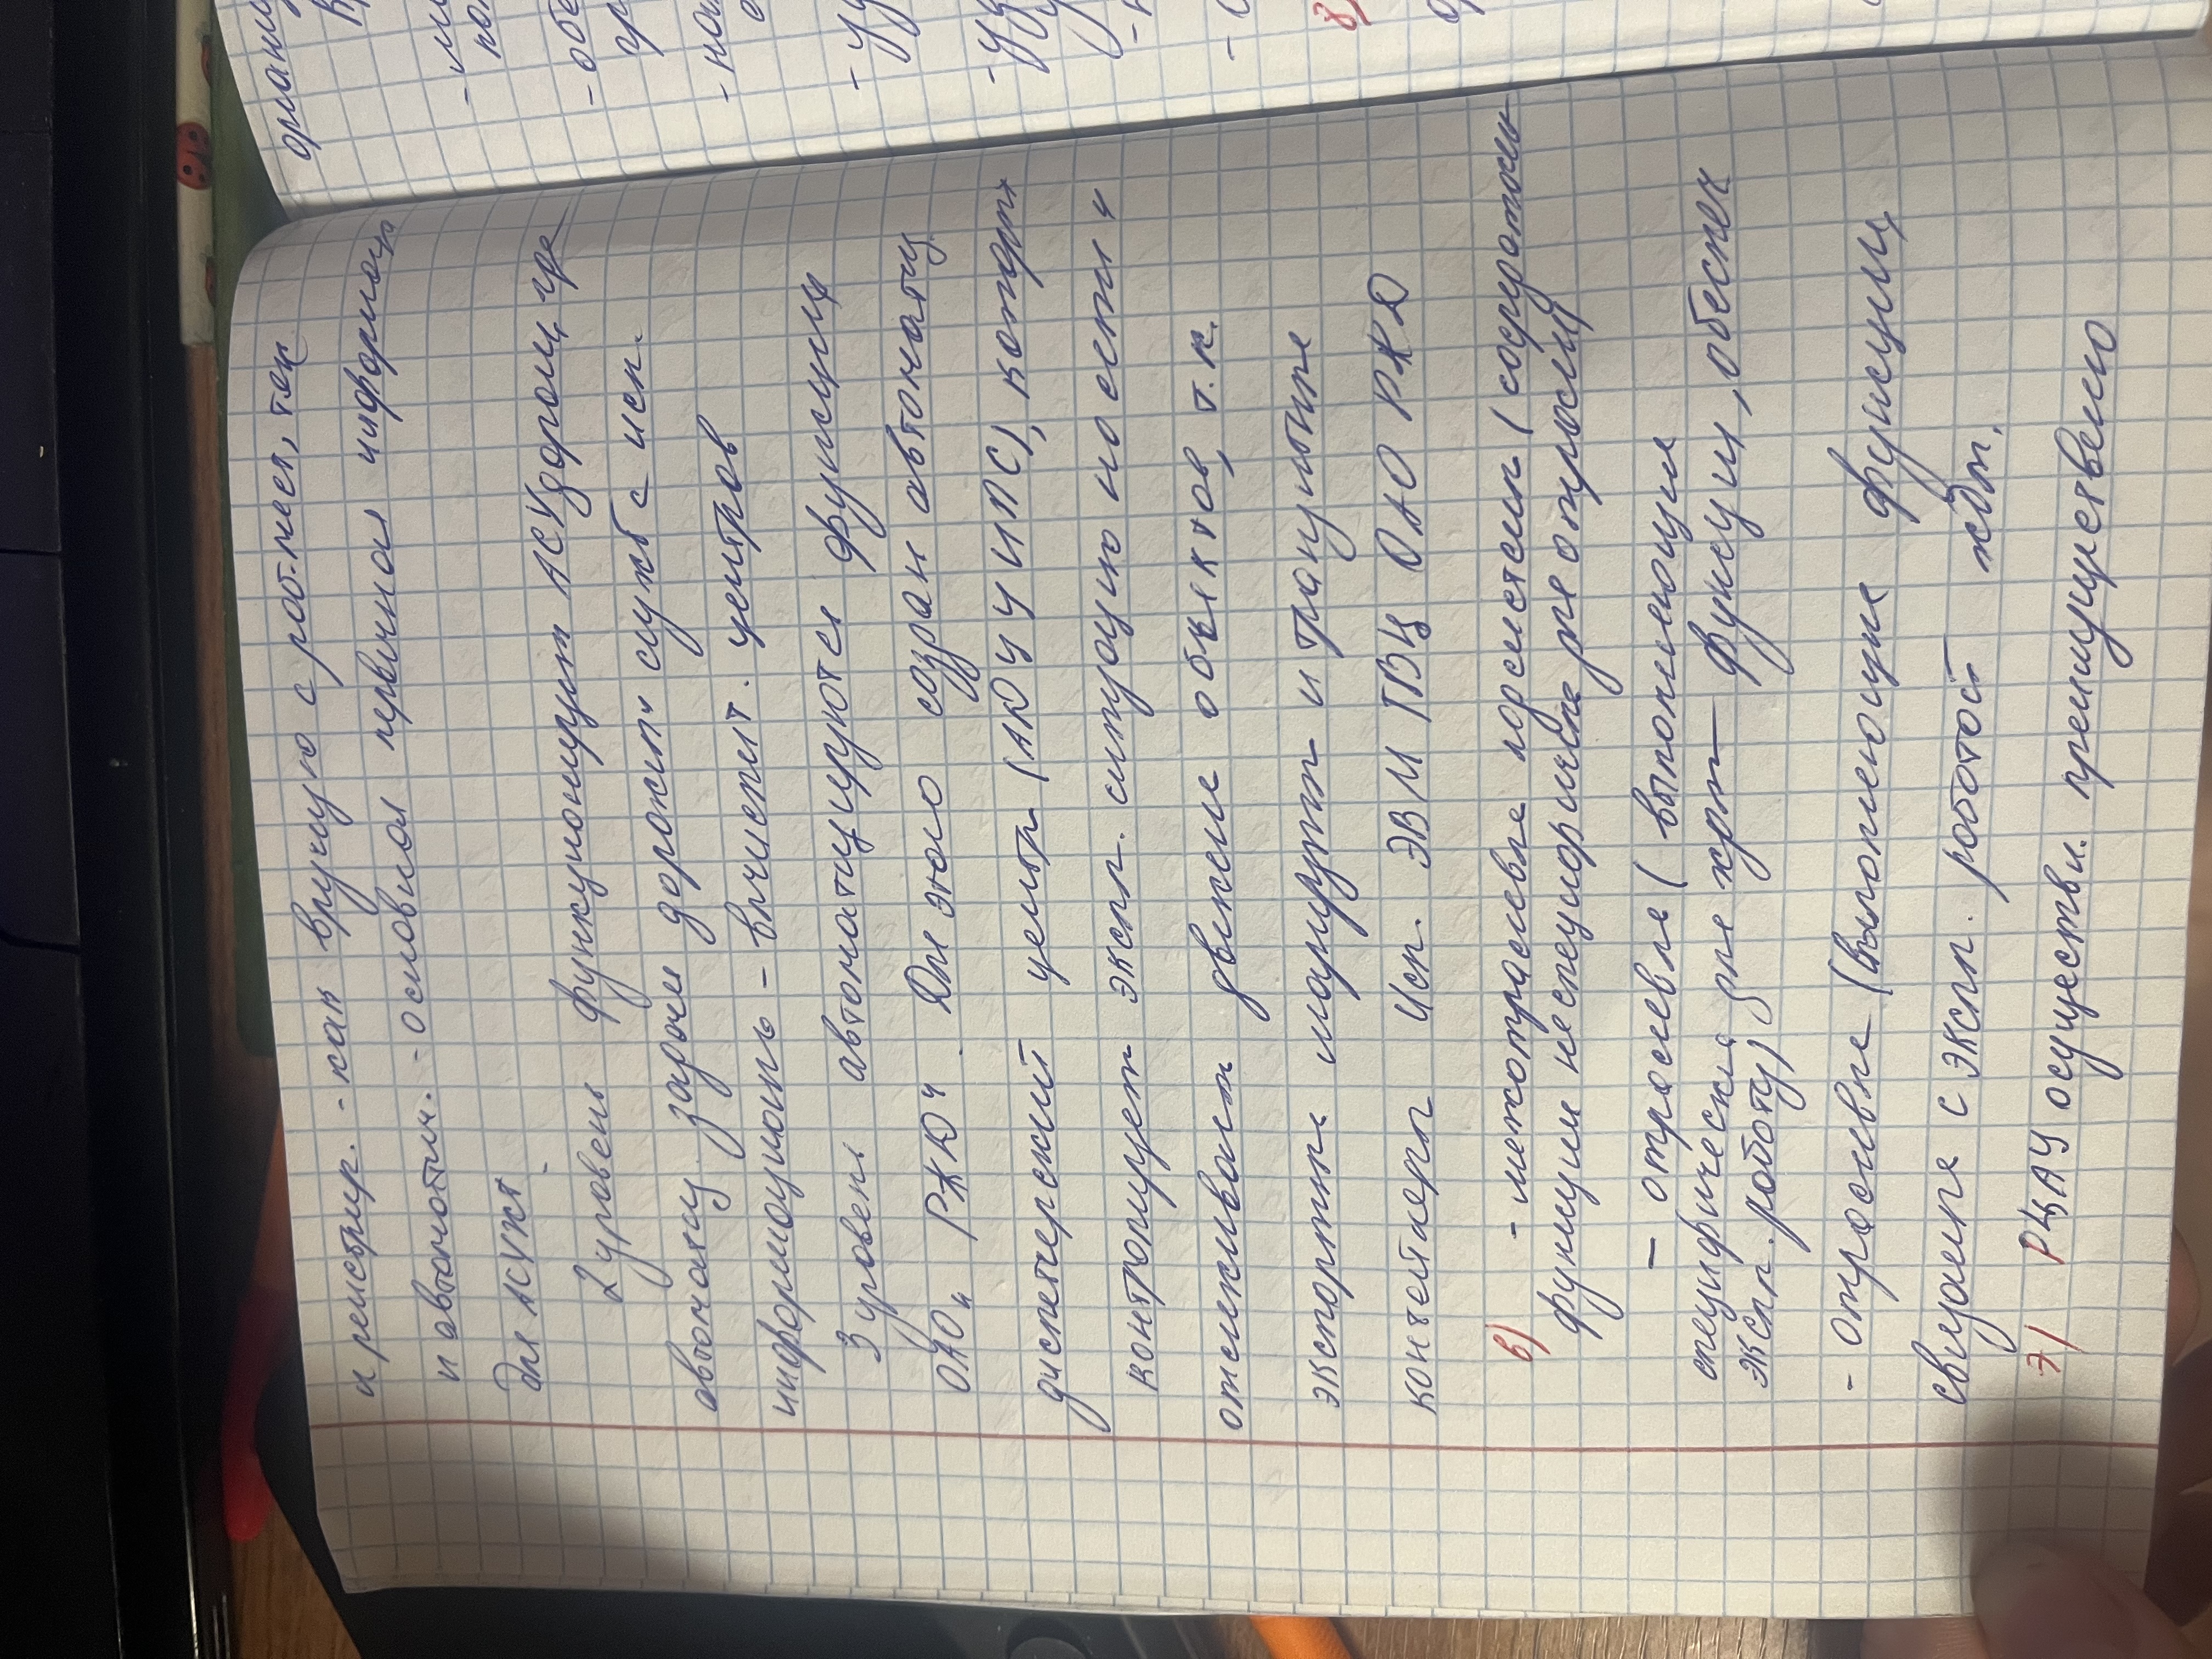 и регистрир. - как вручную с раб. мест, так
и автоматич. - основная первичная информац
для АСУЖТ.
2 уровень функционирует АСУ дорог, где
автоматиз задачи дорожн. служб с исп.
информационно - вычислит. центров
3 уровень автоматизируются функции
ОАО "РЖД". Для этого создан автоматиз
диспетчерский центр (АКДЦУИПС), котор.
контролирует экспл. ситуацию на сети и
отслеживает движение объектов, т.к.
экспортн. маршруты и транзитные
контейнеры Исп. ЭВМ ГВЦ ОАО РЖД
6) - межотраслевые подсистем (содержатель
функции неспецифическ для отраслей)
- отраслевые (выполняющие
специфические для жрт функции, обеспеч
экспл. работу)
- отраслевые (выполняющие функции
связанные с экспл. работой ждт.
7) РЦАУ осуществл. преимущественно
органи
- об
- на
- уу
- уу
8)